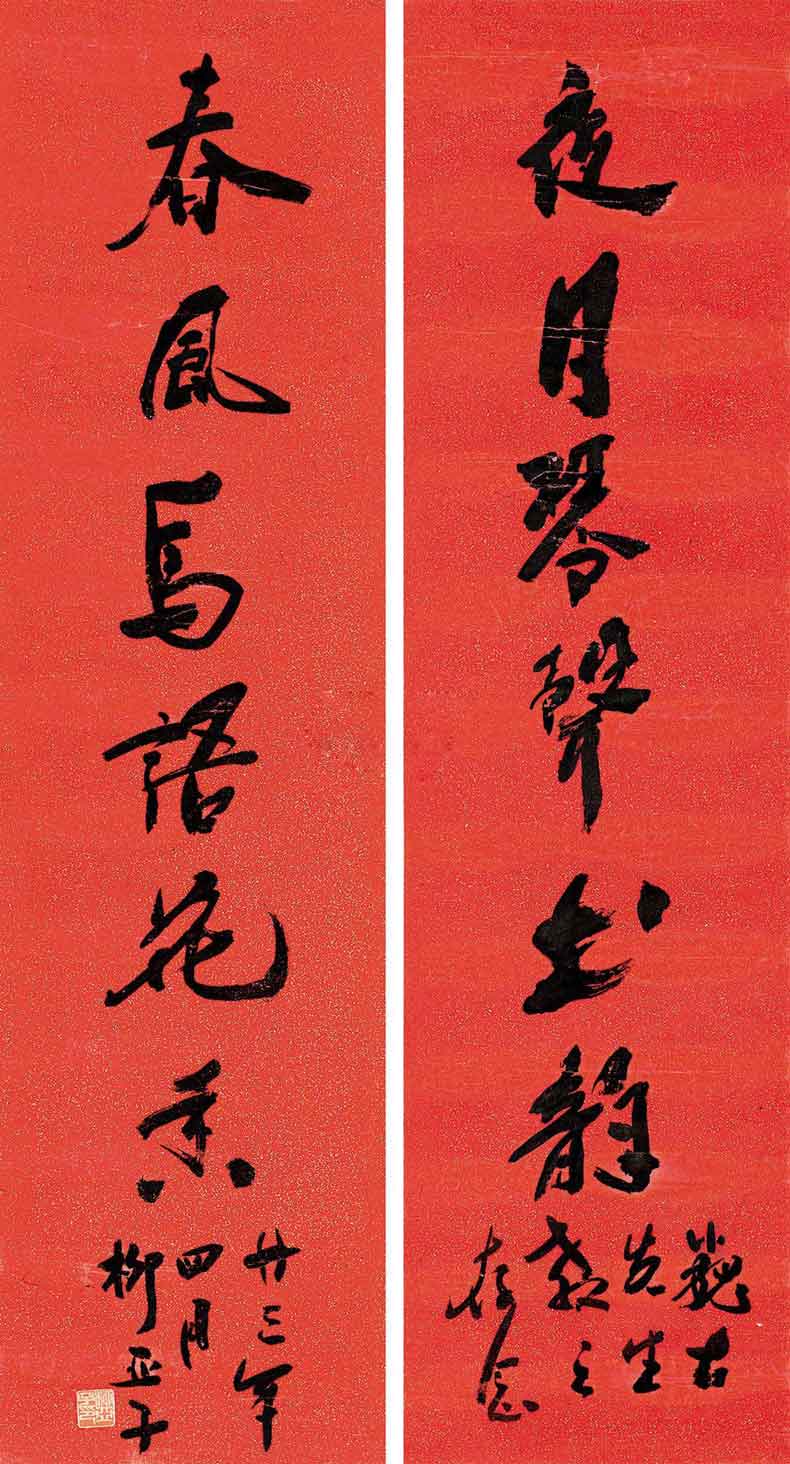 夜月琴聲书韵
巍
先生
教之
存念
春風鳥語花香
廿三年
四月
柳亚子